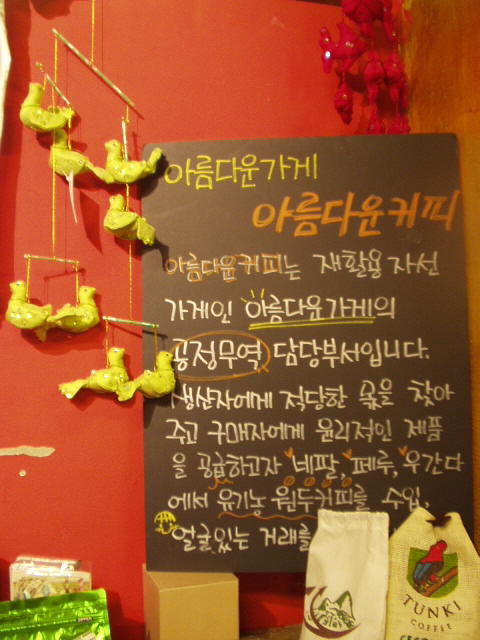 아름다운가게
아름다운커피
아름다운커피는 재활용 자선
가게인 아름다운가게의
공정무역 담당부서입니다.
생산자에게 적당한 몫을 찾아
주고 구매자에게 윤리적인 제품
을 공급하고자 네팔, 페루, 우간다
에서 유기농 원두커피를 수입,
얼굴있는 거래를
TUNKI
COFFEE